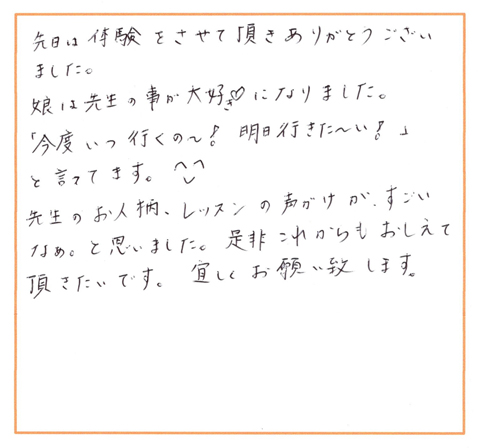 先日は体験をさせて頂きありがとうござい
ました。
娘は先生の事が大好き♡になりました。
「今度いつ行くの〜! 明日行きた〜い!」
と言ってます。^^
先生のお人柄、レッスンの声がけが、すごい
なぁ。と思いました。是非これからもおしえて
頂きたいです。宜しくお願い致します。